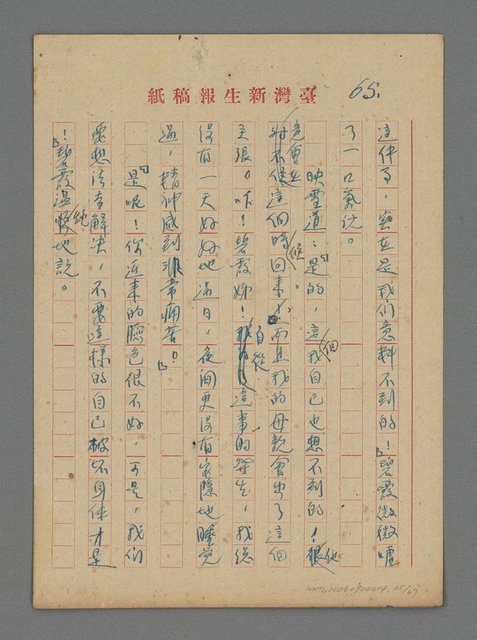 紙稿報生新灣臺
65.
這件事，實在是我們意料不到的！」碧霞微微嘘
了一口氣說。
映雪道：「是的，這個我自己也想不到的！他
竟會在這個時候回來，而且我的母親會出了這個
主張。咋！碧霞姊！自從這事的發生，我總
沒有一天好好地過日，夜間更沒有安隱地睡覺
過，精神感到非常痛苦。」
「是呢！你近來的臉色很不好，可是，我們
要想法去解決，不要這樣的自己破坏身体才是
！」碧霞溫婉地說。